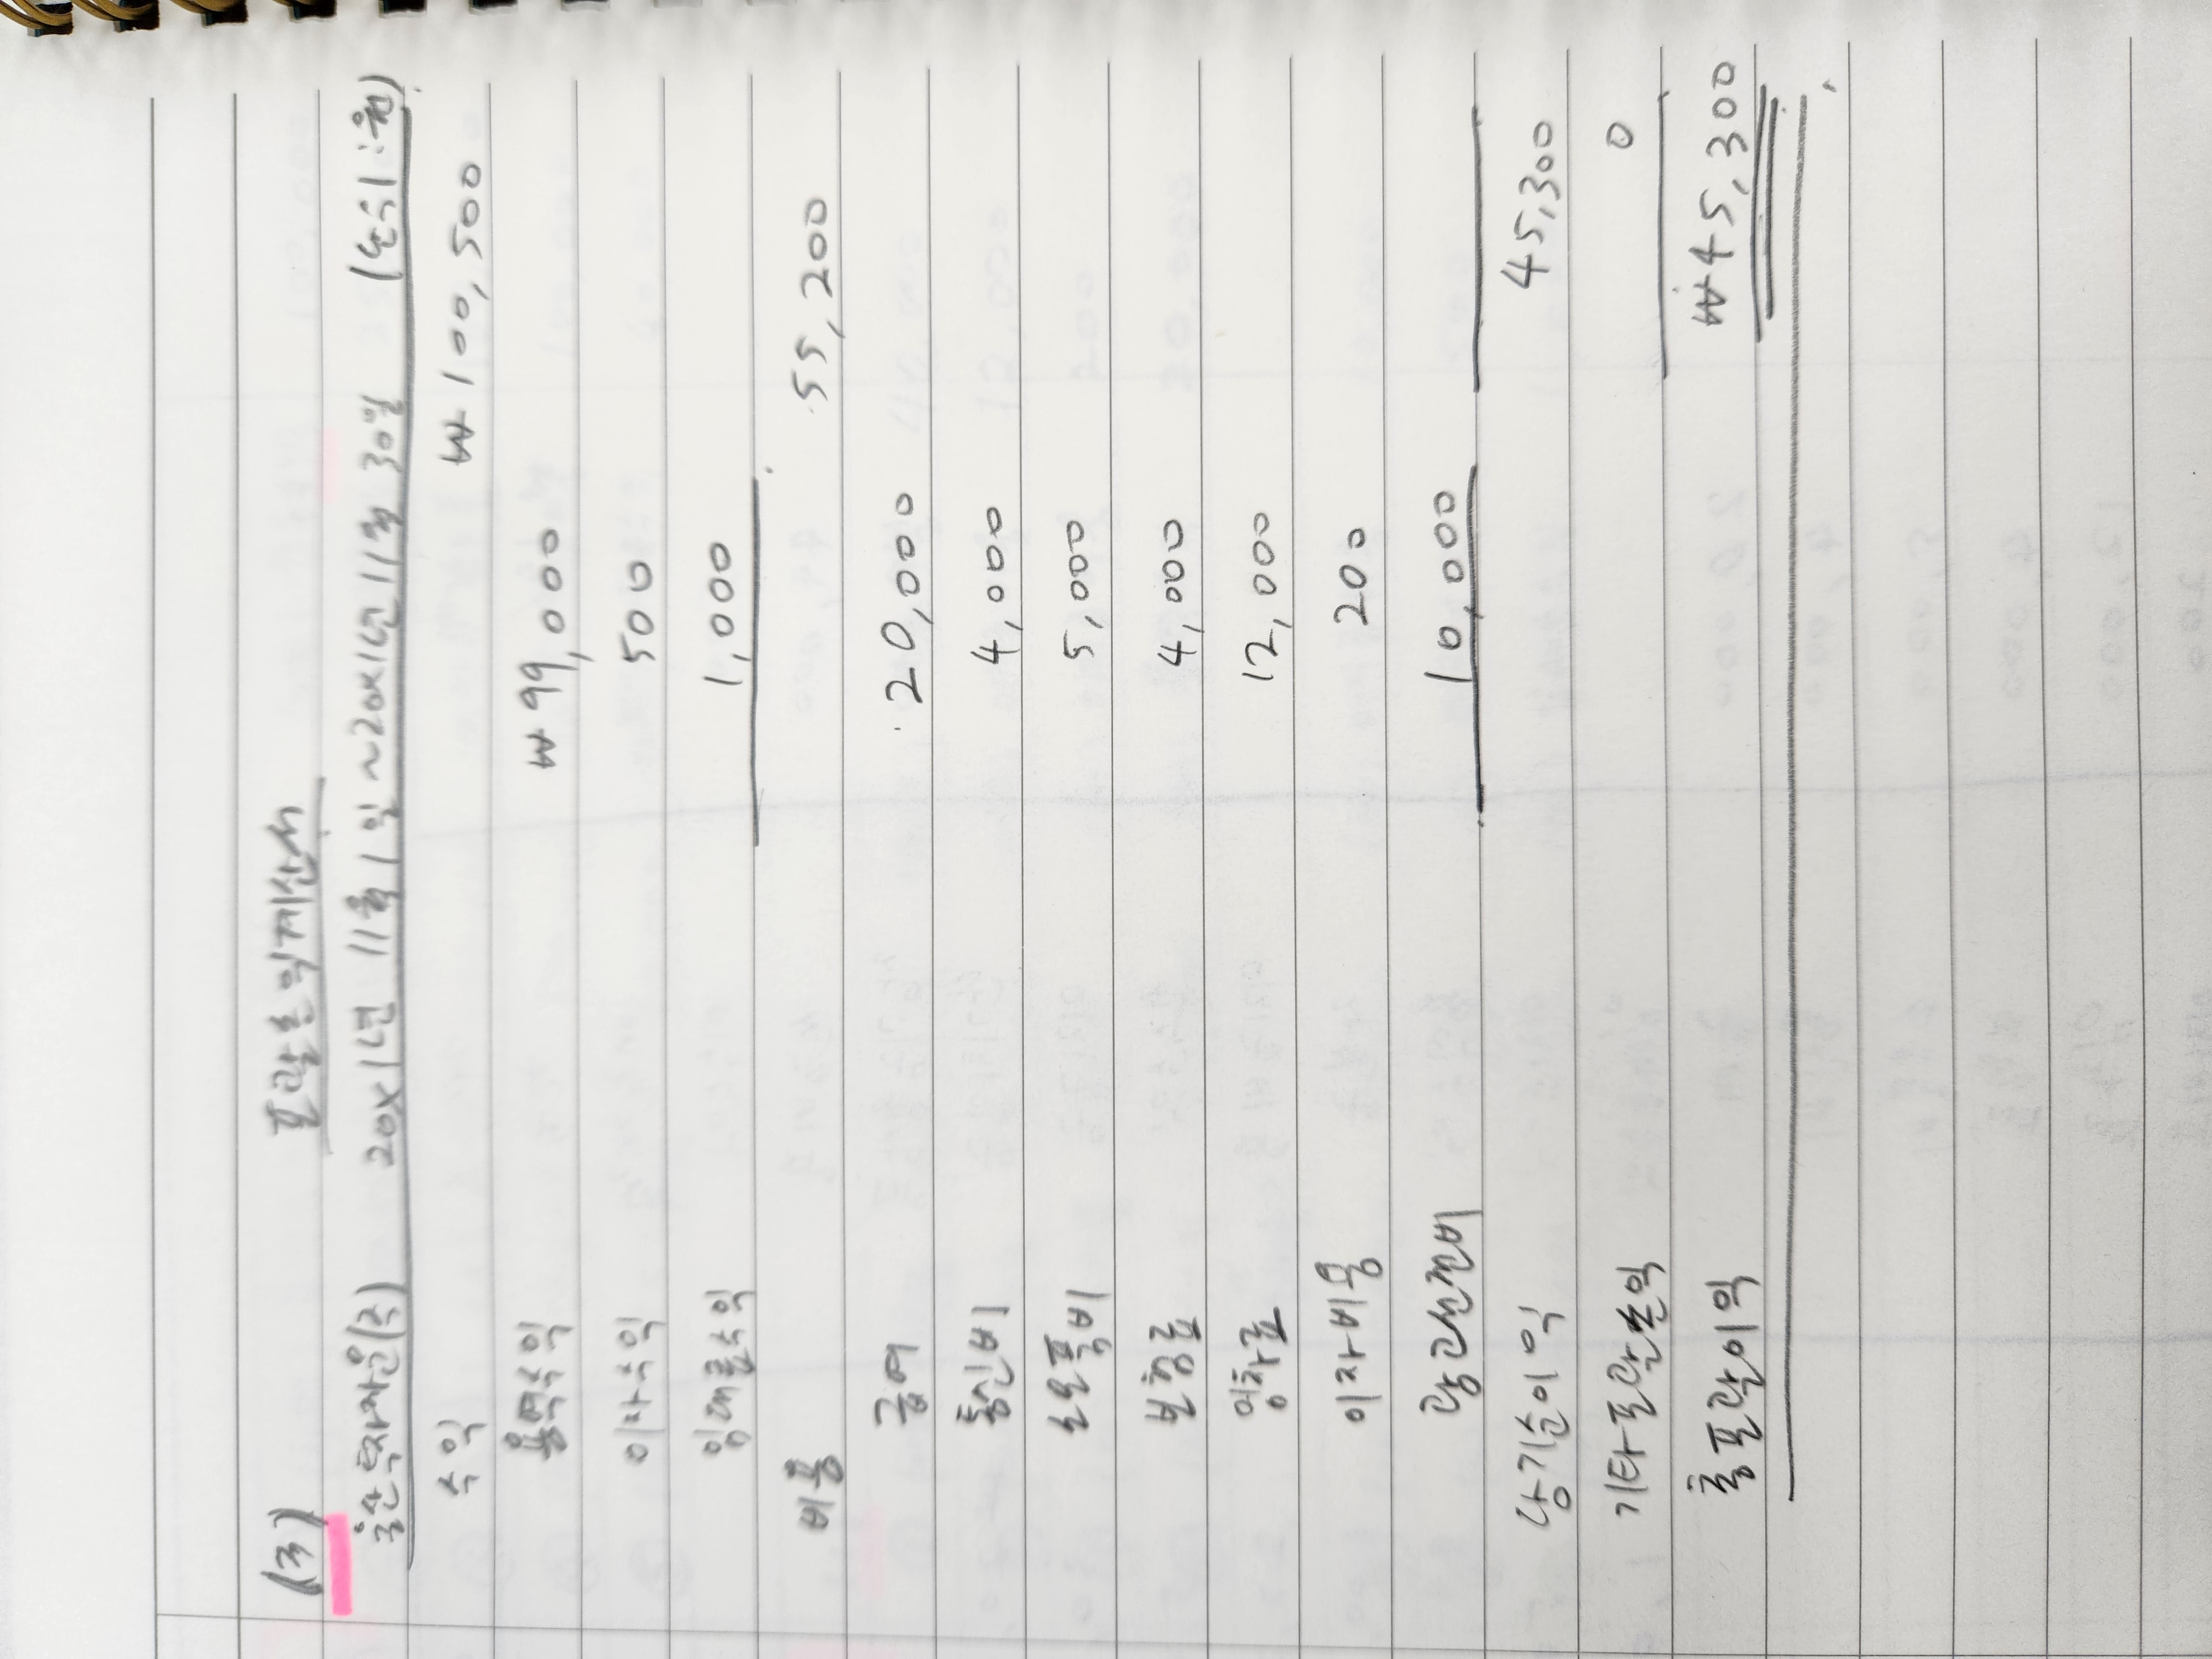 (3) 포괄손익계산서
울산투자자문(주) 20x1년 11월 1일 ~20x1년 11월 30일 (단위:원)
수익 ₩100,500
용역수익 ₩99,000
이자수익 500
임대료수익 1,000
비용 55,200
급여 20,000
통신비 4,000
소모품비 5,000
보험료 4,000
임차료 12,000
이자비용 200
광고선전비 10,000
당기순이익 45,300
기타포괄손익 0
총포괄이익 ₩45,300